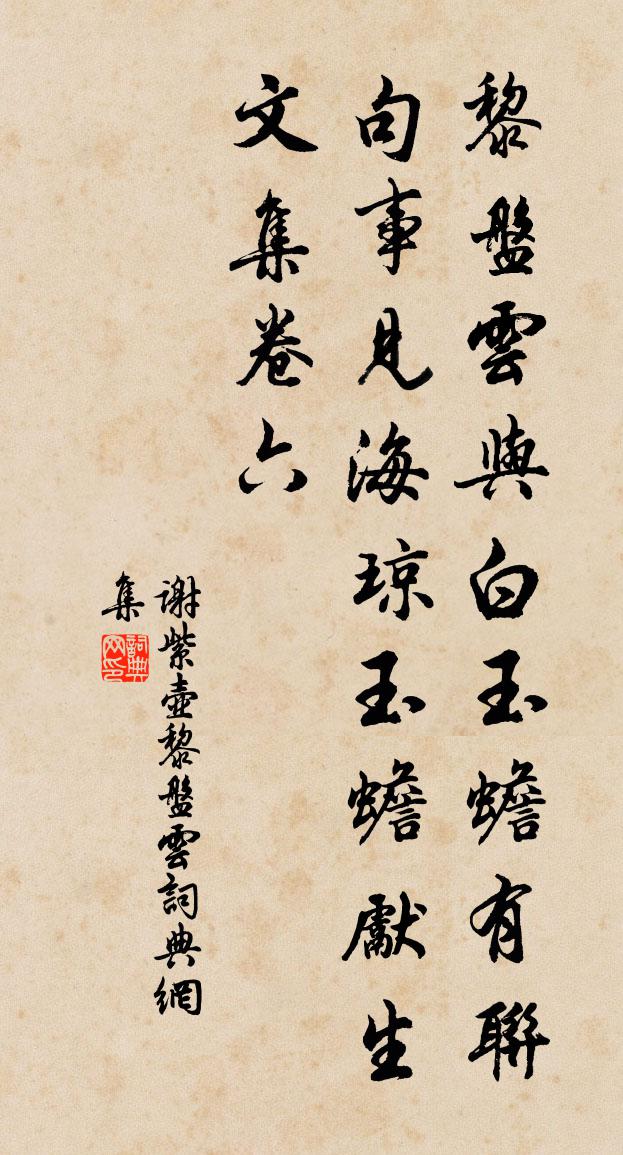 黎盤雲與白玉蟾有聯
句事見海琼玉蟾獻生
文集卷六
謝紫壺黎盤雲詞典網
集
詞典
网印